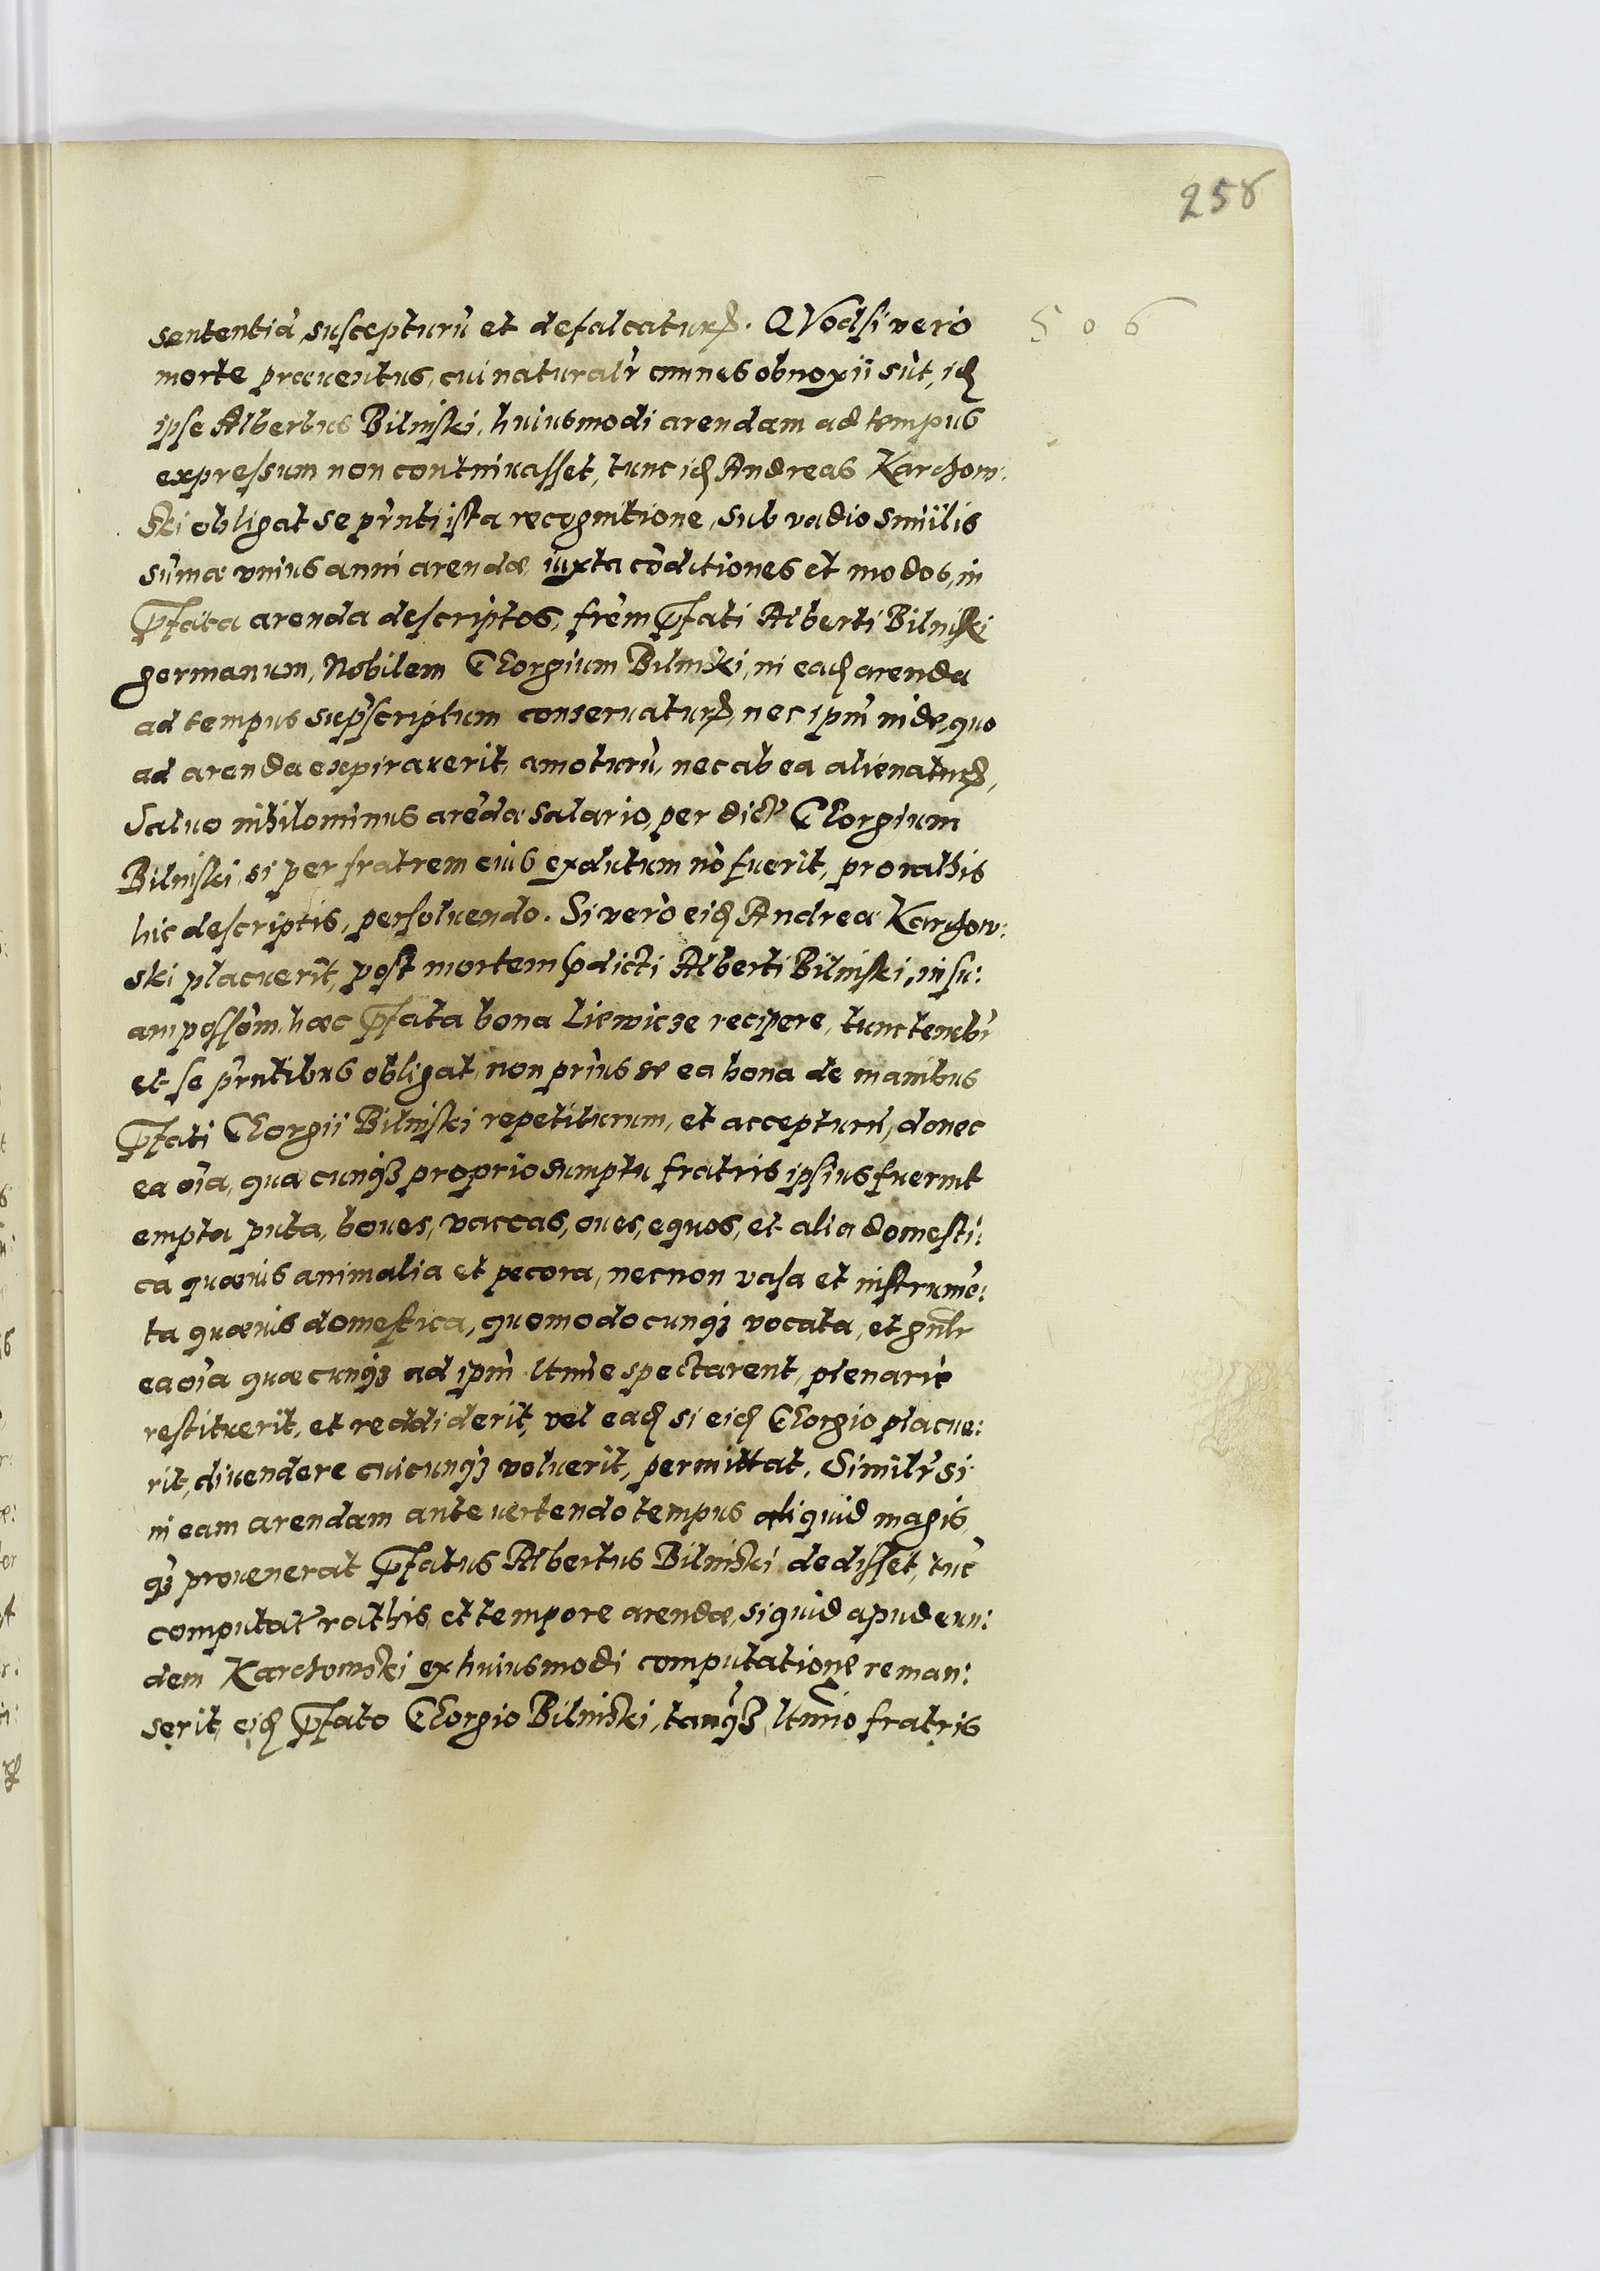 258
506
sententiā suscepturū et defalcaturꝶ. QVodsi vero
morte præuentus, cui naturalr̃ omnes obnoxii sūt, idē
ipse Albertus Bilinski, huiusmodi arendam ad tempus
expressum non continuasset, tunc idē Andreas Karchow:
ski obligat se pñti ista recognitione, sub vadio similis
sūmæ vnius anni arendæ, iuxta cōditiones et modos, in
p̃fata arenda descriptos, fr̃em p̃fati Alberti Bilinski
germanum, Nobilem Georgium Bilinski, in eadē arenda
ad tempus suprascriptum conseruaturꝶ, nec ipm̄ inde, quo
ad arenda expirauerit, amoturū, nec ab ea alienaturꝶ,
Saluo nihilominus arēdæ salario, per dict̃ Georgium
Bilinski, si per fratrem eius exolutum nō fuerit, pro rathis
hic descriptis, persoluendo. Si vero eidē Andreæ Karchow:
ski placuerit, post mortem p̃dicti Alberti Bilinski, in su:
am possōm, hæc p̃fata bona Liewicze recipere, tunc tenebr̃
et se pñtibus obligat, non prius se ea bona de manibus
p̃fati Georgii Bilinski repetiturum, et accepturū, donec
ea oīa, quæcunqꝫ proprio sumptu fratris ipsius fuerint
empta puta, boues, vaccas, oues, equos, et alia domesti:
ca quæuis animalia et pecora, necnon vasa et instrumē:
ta quæuis domestica, quomodocunqꝫ vocata, et gnlr̃
ea oīa quæcunqꝫ ad ipm̄ ltim̄e spectarent, plenarie
restituerit, et reddiderit, vel eadē si eidē Georgio placue:
rit, diuendere cuicunqꝫ voluerit, permittat. Similr̃ si
in eam arendam ante vertendo tempus aliquid magis,
qꝫ prouenerat p̃fatus Albertus Bilinski dedisset, tūc
computat̃ rathis, et tempore arendæ, si quid apud eun:
dem Karchowski ex huiusmodi computatione reman:
serit, eidē p̃fato Georgio Bilinski, tanqꝫ ltim̄o fratris